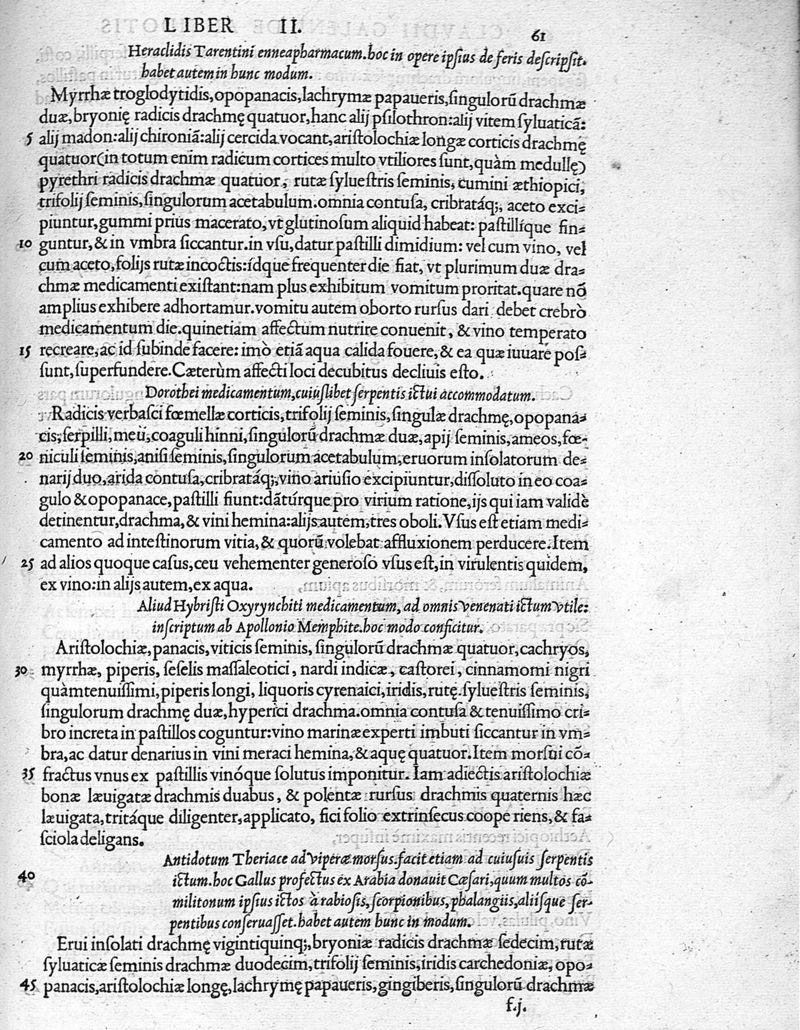 LIBER II. 61
Heraclidis Tarentini enneapharmacum. hoc in opere ipsius de feris descripsit.
habet autem in hunc modum.
Myrrhæ troglodytidis, opopanacis, lachrymæ papaueris, singulorũ drachmæ
duæ, bryonię radicis drachmę quatuor, hanc alij psilothron: alij vitem syluaticã:
5 alij madon: alij chironiã: alij cercida vocant, aristolochiæ longæ corticis drachmę
quatuor (in totum enim radicum cortices multo vtiliores sunt, quàm medullę)
pyrethri radicis drachmæ quatuor, rutæ syluestris seminis, cumini æthiopici,
trifolij seminis, singulorum acetabulum. omnia contusa, cribratáq;, aceto exci=
piuntur, gummi prius macerato, vt glutinosum aliquid habeat: pastillíque fin=
10 guntur, & in vmbra siccantur. in vsu, datur pastilli dimidium: vel cum vino, vel
cum aceto, folijs rutæ incoctis: ídque frequenter die fiat, vt plurimum duæ dra=
chmæ medicamenti existant: nam plus exhibitum vomitum proritat. quare nõ
amplius exhibere adhortamur. vomitu autem oborto rursus dari debet crebrò
medicamentum die. quinetiam affectum nutrire conuenit, & vino temperato
15 recreare, ac id subinde facere: imò etiã aqua calida fouere, & ea quæ iuuare pos=
sunt, superfundere. Cæterùm affecti loci decubitus decliuis esto.
Dorothei medicamentum, cuiuslibet serpentis ictui accommodatum.
Radicis verbasci fœmellæ corticis, trifolij seminis, singulæ drachmę, opopana=
cis, serpilli, meu, coaguli hinni, singulorũ drachmæ duæ, apij seminis, ameos, fœ=
20 niculi seminis, anisi seminis, singulorum acetabulum, eruorum insolatorum de=
narij duo, arida contusa, cribratáq;, vino ariusio excipiuntur, dissoluto in eo coa=
gulo & opopanace, pastilli fiunt: dãtúrque pro virium ratione, ijs qui iam validè
detinentur, drachma, & vini hemina: alijs autem, tres oboli. Vsus est etiam medi=
camento ad intestinorum vitia, & quorũ volebat affluxionem perducere. Item
25 ad alios quoque casus, ceu vehementer generoso vsus est, in virulentis quidem,
ex vino: in alijs autem, ex aqua.
Aliud Hybristi Oxyrynchiti medicamentum, ad omnis venenati ictum vtile:
inscriptum ab Apollonio Memphite. hoc modo conficitur.
Aristolochiæ, panacis, viticis seminis, singulorũ drachmæ quatuor, cachryos,
30 myrrhæ, piperis, seselis massaleotici, nardi indicæ, castorei, cinnamomi nigri
quàm tenuissimi, piperis longi, liquoris cyrenaici, iridis, rutę. syluestris seminis,
singulorum drachmę duæ, hyperici drachma. omnia contusa & tenuissimo cri=
bro increta in pastillos coguntur: vino marinæ experti imbuti siccantur in vm=
bra, ac datur denarius in vini meraci hemina, & aquę quatuor. Item morsui cõ=
35 fractus vnus ex pastillis vinóque solutus imponitur. Iam adiectis aristolochiæ
bonæ læuigatæ drachmis duabus, & polentæ rursus drachmis quaternis hæc
læuigata, tritáque diligenter, applicato, fici folio extrinsecus coope riens, & fa=
sciola deligans.
Antidotum Theriace ad viperæ morsus. facit etiam ad cuiusuis serpentis
40 ictum. hoc Gallus profectus ex Arabia donauit Cæsari, quum multos cõ-
militonum ipsius ictos à rabiosis, scorpionibus, phalangiis, aliisque ser=
pentibus conseruasset. habet autem hunc in modum.
Erui insolati drachmę vigintiquinq;, bryoniæ radicis drachmæ sedecim, rutæ
syluaticæ seminis drachmæ duodecim, trifolij seminis, iridis carchedoniæ, opo=
45 panacis, aristolochiæ longę, lachrymę papaueris, gingiberis, singulorũ drachmæ
f.j.